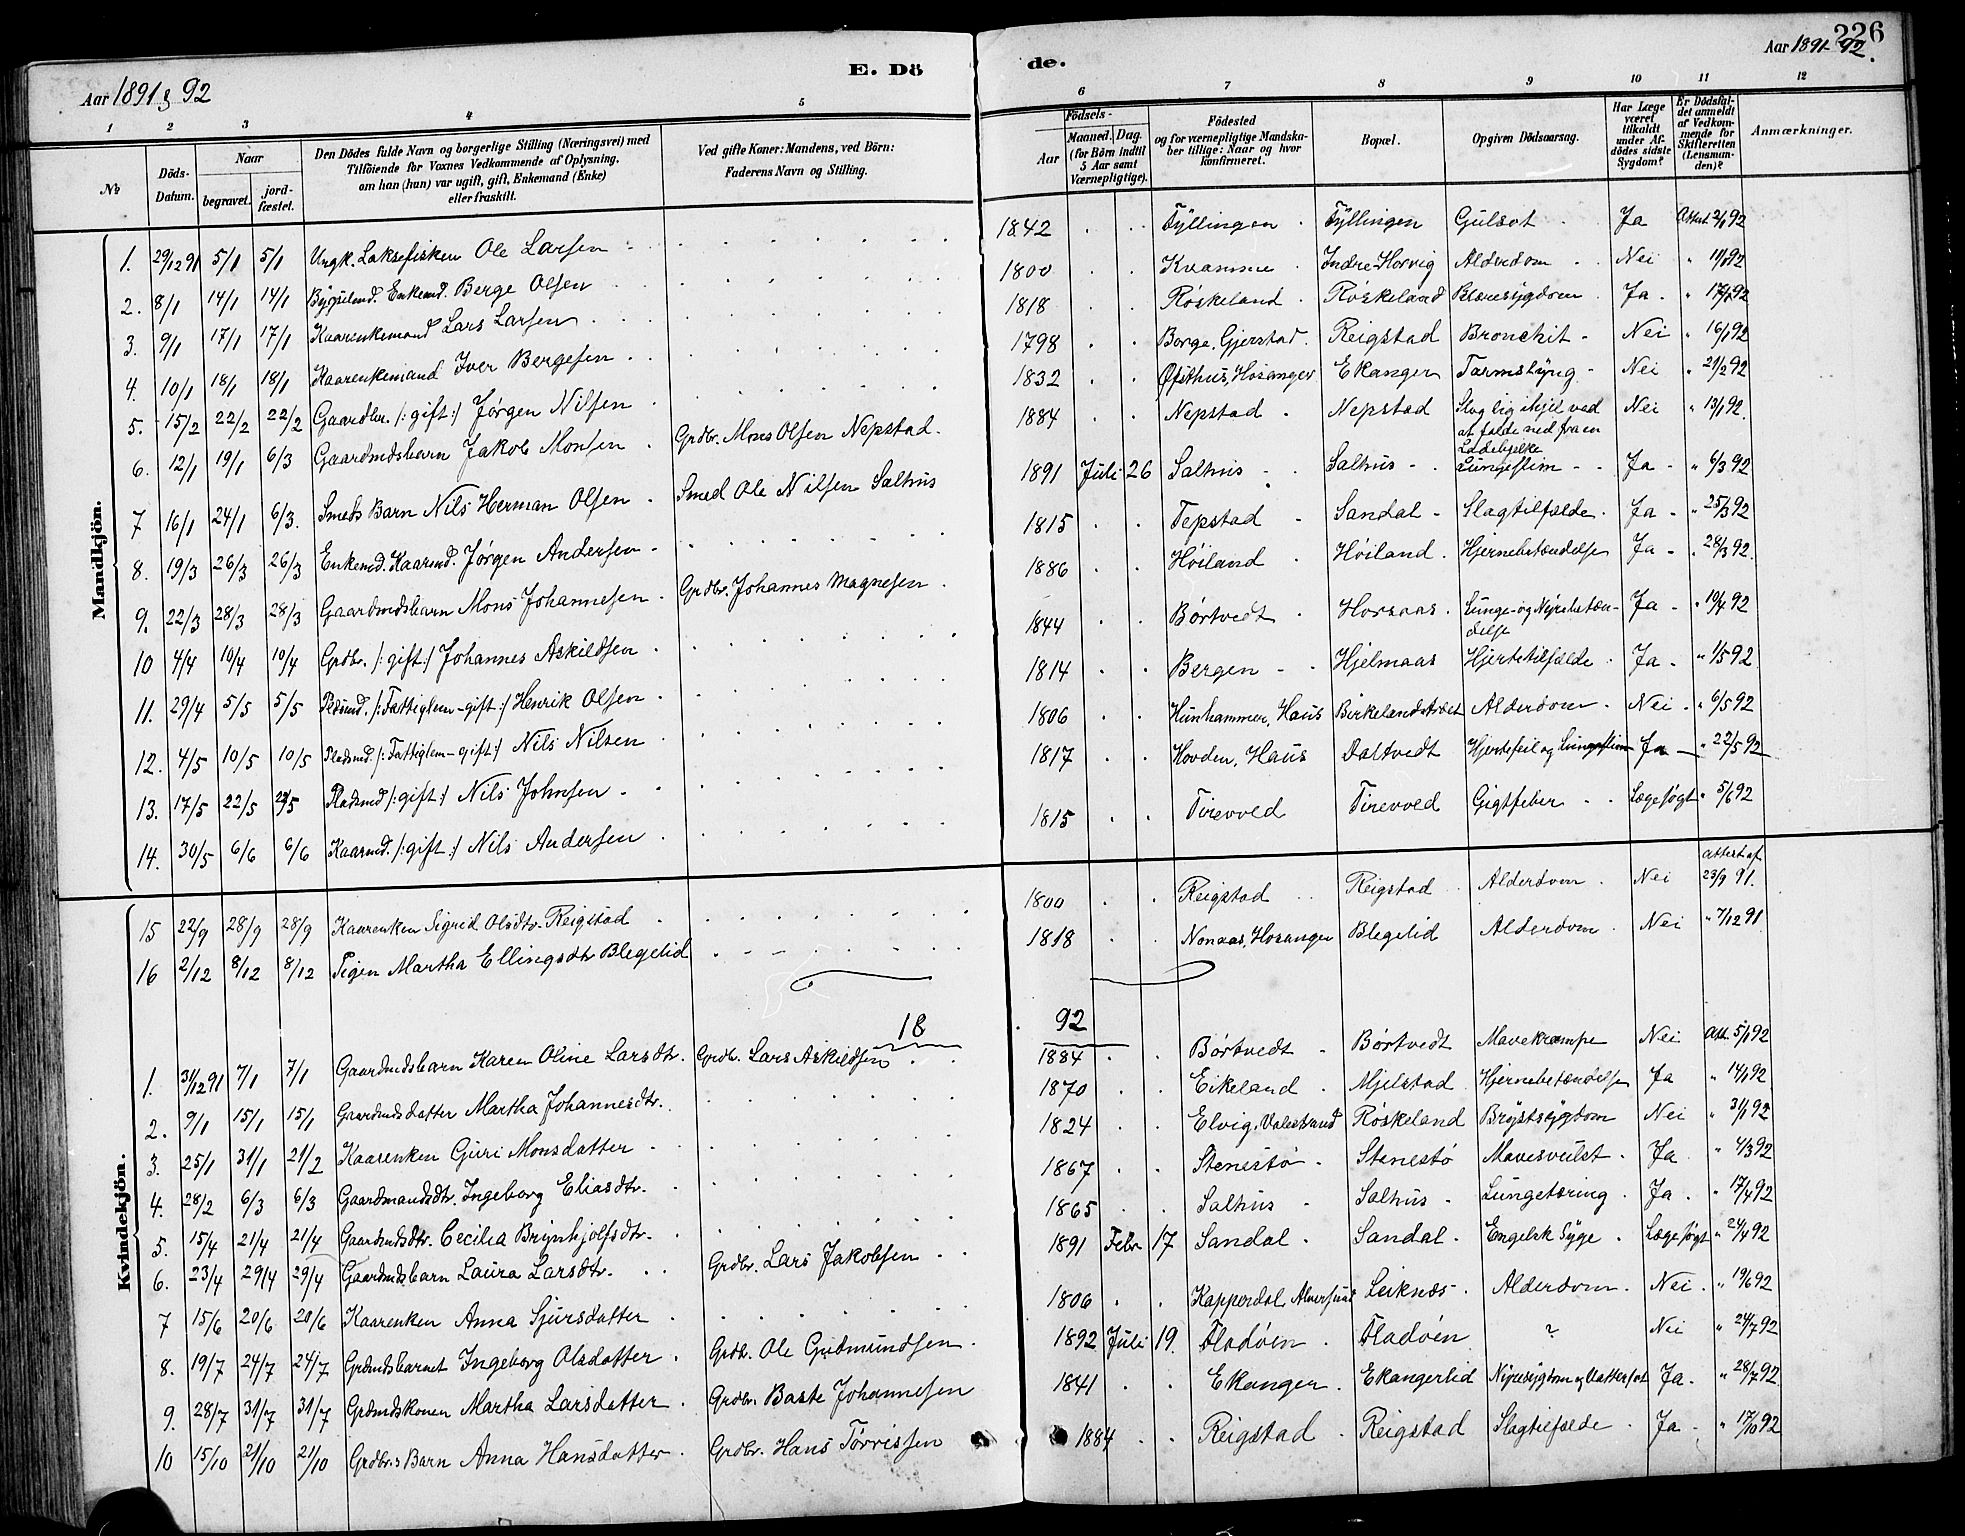 226
Aar 1891 & 92
E. Dö
de.
Aar 1891-92.
1 2 3 4 5 6 7 8 9 10 11 12
No
Döds-Datum.
Naar
begravet.
jord-fæstet.
Den Dödes fulde Navn og borgerlige Stilling (Næringsvei) med
Tilföiende for Voxnes Vedkommende af Oplysning,
om han (hun) var ugift, gift, Enkemand (Enke)
eller fraskilt.
Ved gifte Koner: Mandens, ved Börn:
Faderens Navn og Stilling.
Födsels-
Aar
Maaned. Dag.
(for Börn indtil
5 Aar samt
Værnepligtige).
Födested
og for værnepligtige Mandska-
ber tillige: Naar og hvor
konfirmeret.
Bopæl.
Opgiven Dödsaarsag.
Har Læge
været
tilkaldt
under Af-
dödes sidste
Sygdom?
Er Dödsfal-
det anmeldt
af Vedkom-
mende for
Skifteretten
(Lensman-
den)?
Anmærkninger.
Mandkjön.
1. 29/12 91 5/1 5/1 Ungk. Laksefisker Ole Larsen 1842 Fyllingen Fyllingen Gulsot Ja Attest 2/1 92
2. 8/1 14/1 14/1 Bygselmd. Enkemd. Berge Olsen 1800 Kvamme Indre Horvig Alderdom Nei " 11/1 92
3. 9/1 17/1 17/1 Kaarenkemand Lars Larsen 1818 Röskeland Röskeland Blæresygdom Ja " 17/1 92
4. 10/1 18/1 18/1 Kaarenkemand Iver Bergesen 1798 Borge, Gjerstad Reigstad Bronchit Nei " 16/1 92
5. 15/2 22/2 22/2 Gaardbr. /: gift :/ Jørgen Nilsen 1832 Øfsthus, Hosanger Ekanger Tarmslyng Nei " 21/2 92
6. 12/1 19/1 6/3 Gaardmdsbarn Jakob Monsen Grdbr. Mons Olsen Nepstad 1884 Nepstad Nepstad Slog sig ihjel ved at falde ned fra en Ladebjelke Nei " 13/1 92
7 16/1 24/1 6/3 Smeds Barn Nils Herman Olsen Smed Ole Nilsen Salhus 1891 Juli 26 Salhus Salhus Lungeslim Ja " 6/3 92
8. 19/3 26/3 26/3 Enkemd. Kaarmd. Jørgen Andersen 1815 Tepstad Sandal Slagtilfælde Ja " 25/3 92
9. 22/3 28/3 28/3 Gaardmdsbarn Mons Johannesen Grdbr. Johannes Magnesen 1886 Höiland Höiland Hjernebetændelse Ja " 28/3 92
10 4/4 10/4 10/4 Grdbr. /: gift :/ Johannes Askildsen 1844 Börtvedt Horsaas Lunge- og Nyrebetændelse Ja " 10/4 92
11. 29/4 5/5 5/5 Pladsmd. /: Fattiglem - gift :/ Henrik Olsen 1814 Bergen Hjelmaas Hjertetilfælde Ja " 1/5 92
12. 4/5 10/5 10/5 Pladsmd. /: Fattiglem - gift :/ Nils Nilsen 1806 Hunhammer, Haus Birkelandstræet Alderdom Nei " 6/5 92
13. 17/5 22/5 22/5 Pladsmd /: gift :/ Nils Johnsen 1817 Hovden, Haus Daltvedt Hjertefeil og Lungeslim Ja " 22/5 92
14. 30/5 6/6 6/6 Kaarmd. /: gift :/ Nils Andersen 1815 Tirevold Tirevold Gigtfeber Lægesøgt " 5/6 92
15 22/9 28/9 28/9 Kaarenken Sigrid Olsdtr. Reigstad 1800 Reigstad Reigstad Alderdom Nei attest af 23/9 91.
16 2/12 8/12 8/12 Pigen Martha Ellingsdtr Blegelid 1818 Nonaas, Hosanger Blegelid Alderdom Nei " 7/12 91
18 92
Kvindekjön.
1. 31/12 91 7/1 7/1 Gaardmdsbarn Karen Oline Larsdtr. Grdbr. Lars Askildsen 1884 Börtvedt Börtvedt Mavekrampe Nei Att. 5/1 92
2. 9/1 15/1 15/1 Gaardmdsdatter Martha Johannesdtr. 1870 Eikeland Mjelstad Hjernebetændelse Ja " 14/1 92
3. 25/1 31/1 21/2 Kaarenken Guri Monsdatter 1824 Elvig, Valestrand Röskeland Brystsygdom Nei " 31/1 92
4. 28/2 6/3 6/3 Gaardmandsdtr. Ingeborg Eliasdtr. 1867 Stenestö Stenestö Mavesvulst Ja " 4/3 92
5. 15/4 21/4 21/4 Gaardmdsdtr. Cecilia Brynhjolfsdtr. 1865 Salhus Salhus Lungetæring Ja " 17/4 92
6. 23/4 29/4 29/4 Gaardmdsbarn Laura Larsdtr. Grdbr. Lars Jakobsen 1891 Febr 17 Sandal Sandal Engelsk Syge Lægesøgt " 24/4 92
7 15/6 20/6 20/6 Kaarenken Anna Sjursdatter 1806 Kapperdal, Alversund Leiknæs Alderdom Nei " 19/6 92
8. 19/7 24/7 24/7 Grdmdsbarnet Ingeborg Olsdatter Grdbr. Ole Gudmundsen 1892 Juli 19. Fladöen Fladöen ? Nei " 24/7 92
9. 28/7 31/7 31/7 Grdmdskonen Martha Larsdatter Grdbr. Baste Johannesen 1841 Ekanger Ekangerlid Nyresygdom og Vattersot Ja " 28/7 92
10 15/10 21/10 21/10 Grdbr.s Barn Anna Hansdatter Grdbr. Hans Törrissen 1884 Reigstad Reigstad Slagtilfælde Ja " 17/10 92